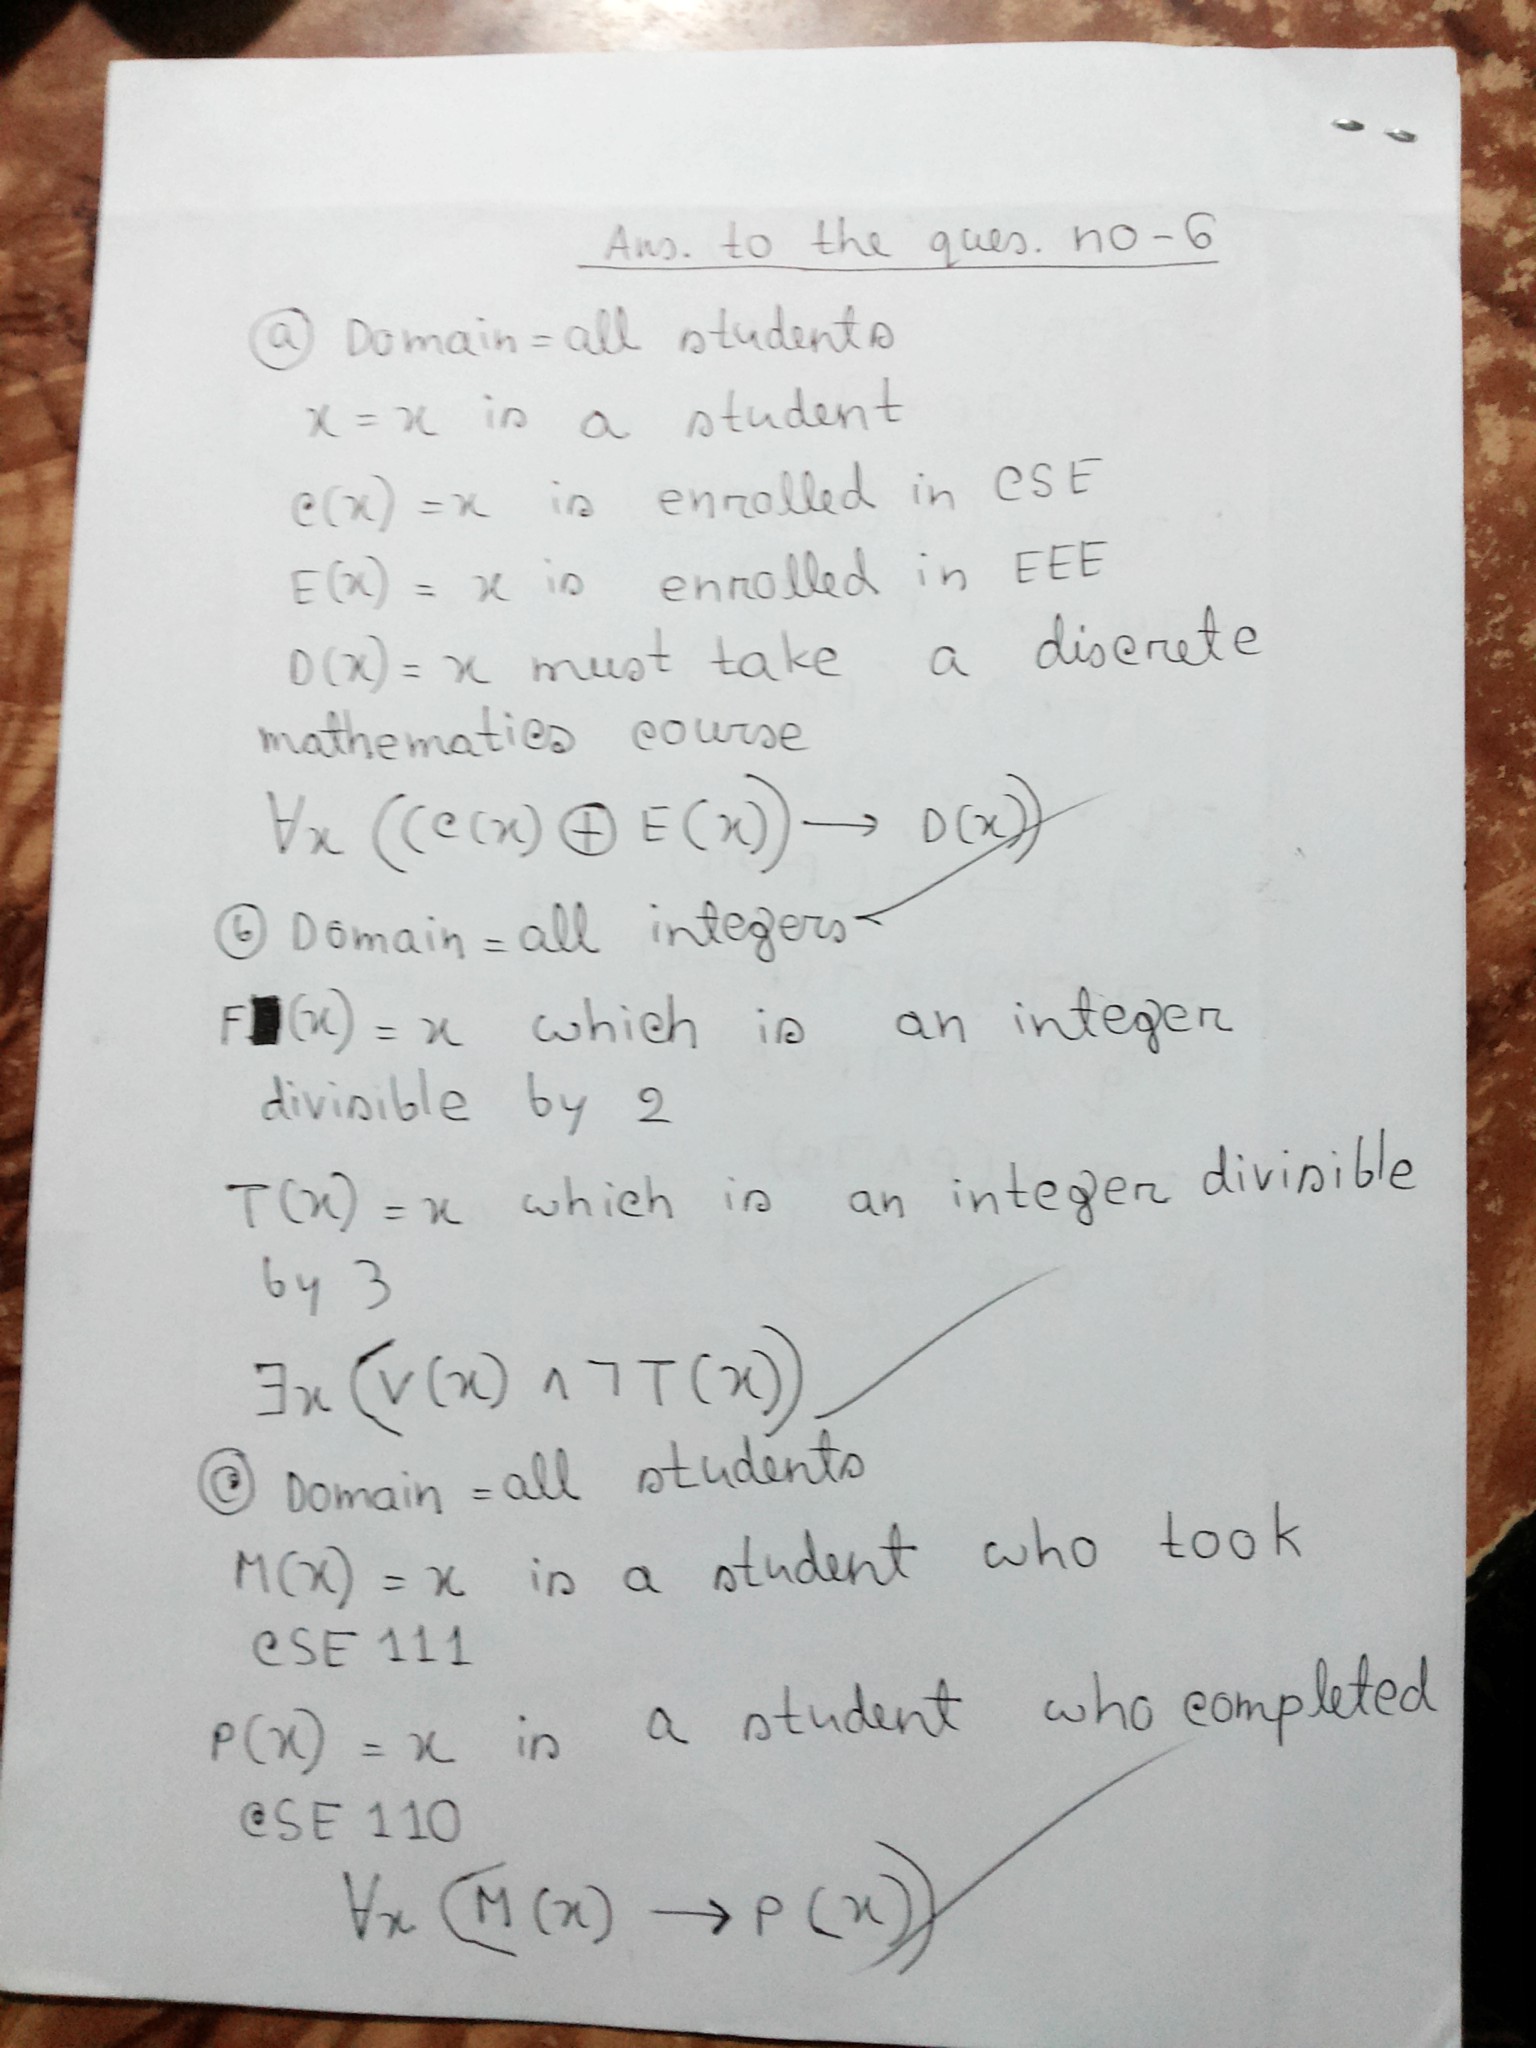 Ans. to the ques. no-6
ⓐ Domain = all students
x = x is a student
C(x) = x is enrolled in CSE
E(x) = x is enrolled in EEE
D(x) = x must take a discrete
mathematics course
∀x ((C(x) ⊕ E(x)) → D(x))
ⓑ Domain = all integers
F(x) = x which is an integer
divisible by 2
T(x) = x which is an integer divisible
by 3
∃x (V(x) ∧ ¬T(x))
ⓒ Domain = all students
M(x) = x is a student who took
CSE 111
P(x) = x is a student who completed
CSE 110
∀x (M(x) → P(x))